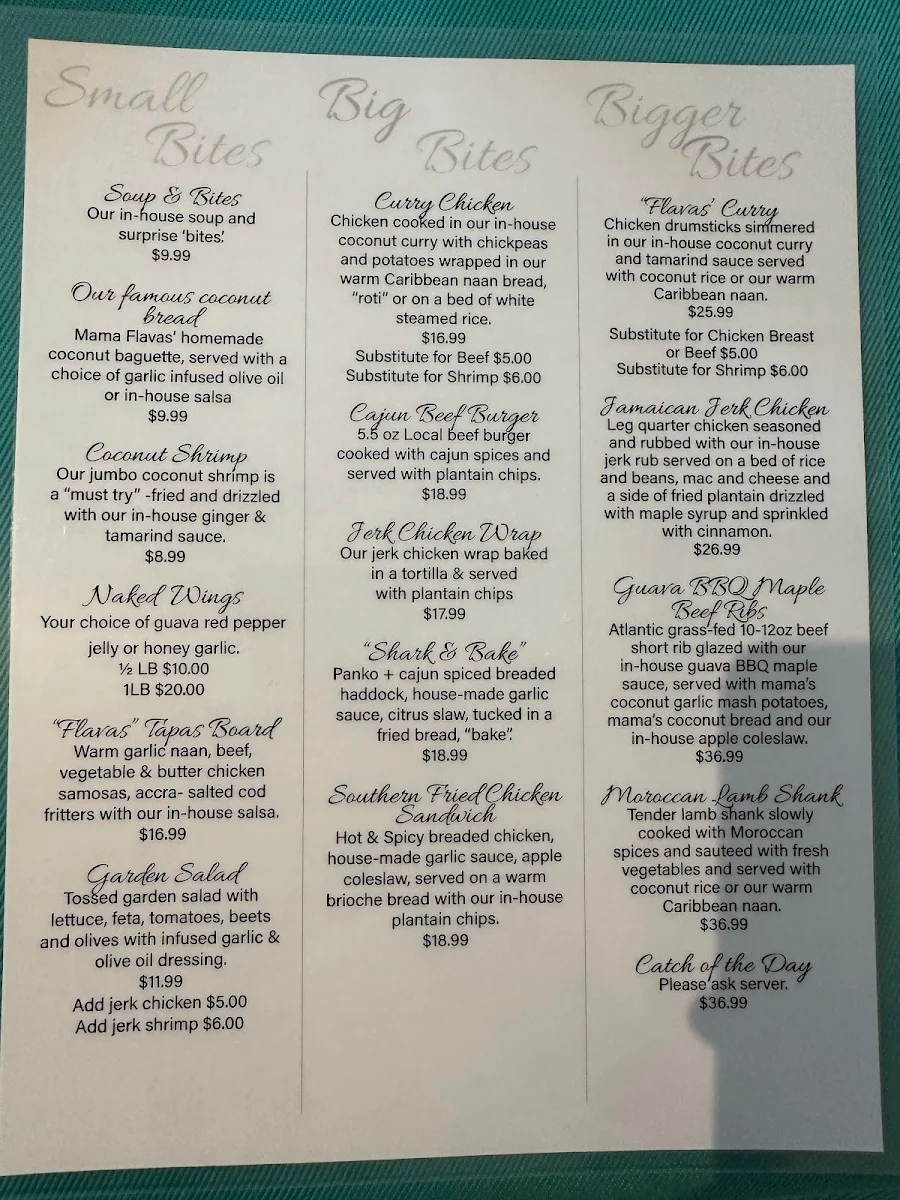 Small
Bites
Soup & Bites
Our in-house soup and
surprise 'bites'.
$9.99
Our famous coconut
bread
Mama Flavas' homemade
coconut baguette, served with a
choice of garlic infused olive oil
or in-house salsa
$9.99
Coconut Shrimp
Our jumbo coconut shrimp is
a "must try" -fried and drizzled
with our in-house ginger &
tamarind sauce.
$8.99
Naked Wings
Your choice of guava red pepper
jelly or honey garlic.
½ LB $10.00
1LB $20.00
"Flavas" Tapas Board
Warm garlic naan, beef,
vegetable & butter chicken
samosas, accra- salted cod
fritters with our in-house salsa.
$16.99
Garden Salad
Tossed garden salad with
lettuce, feta, tomatoes, beets
and olives with infused garlic &
olive oil dressing.
$11.99
Add jerk chicken $5.00
Add jerk shrimp $6.00
Big
Bites
Curry Chicken
Chicken cooked in our in-house
coconut curry with chickpeas
and potatoes wrapped in our
warm Caribbean naan bread,
"roti" or on a bed of white
steamed rice.
$16.99
Substitute for Beef $5.00
Substitute for Shrimp $6.00
Cajun Beef Burger
5.5 oz Local beef burger
cooked with cajun spices and
served with plantain chips.
$18.99
Jerk Chicken Wrap
Our jerk chicken wrap baked
in a tortilla & served
with plantain chips
$17.99
"Shark & Bake"
Panko + cajun spiced breaded
haddock, house-made garlic
sauce, citrus slaw, tucked in a
fried bread, "bake".
$18.99
Southern Fried Chicken
Sandwich
Hot & Spicy breaded chicken,
house-made garlic sauce, apple
coleslaw, served on a warm
brioche bread with our in-house
plantain chips.
$18.99
Bigger
Bites
"Flavas' Curry
Chicken drumsticks simmered
in our in-house coconut curry
and tamarind sauce served
with coconut rice or our warm
Caribbean naan.
$25.99
Substitute for Chicken Breast
or Beef $5.00
Substitute for Shrimp $6.00
Jamaican Jerk Chicken
Leg quarter chicken seasoned
and rubbed with our in-house
jerk rub served on a bed of rice
and beans, mac and cheese and
a side of fried plantain drizzled
with maple syrup and sprinkled
with cinnamon.
$26.99
Guava BBQ Maple
Beef Ribs
Atlantic grass-fed 10-12oz beef
short rib glazed with our
in-house guava BBQ maple
sauce, served with mama's
coconut garlic mash potatoes,
mama's coconut bread and our
in-house apple coleslaw.
$36.99
Moroccan Lamb Shank
Tender lamb shank slowly
cooked with Moroccan
spices and sauteed with fresh
vegetables and served with
coconut rice or our warm
Caribbean naan.
$36.99
Catch of the Day
Please ask server.
$36.99